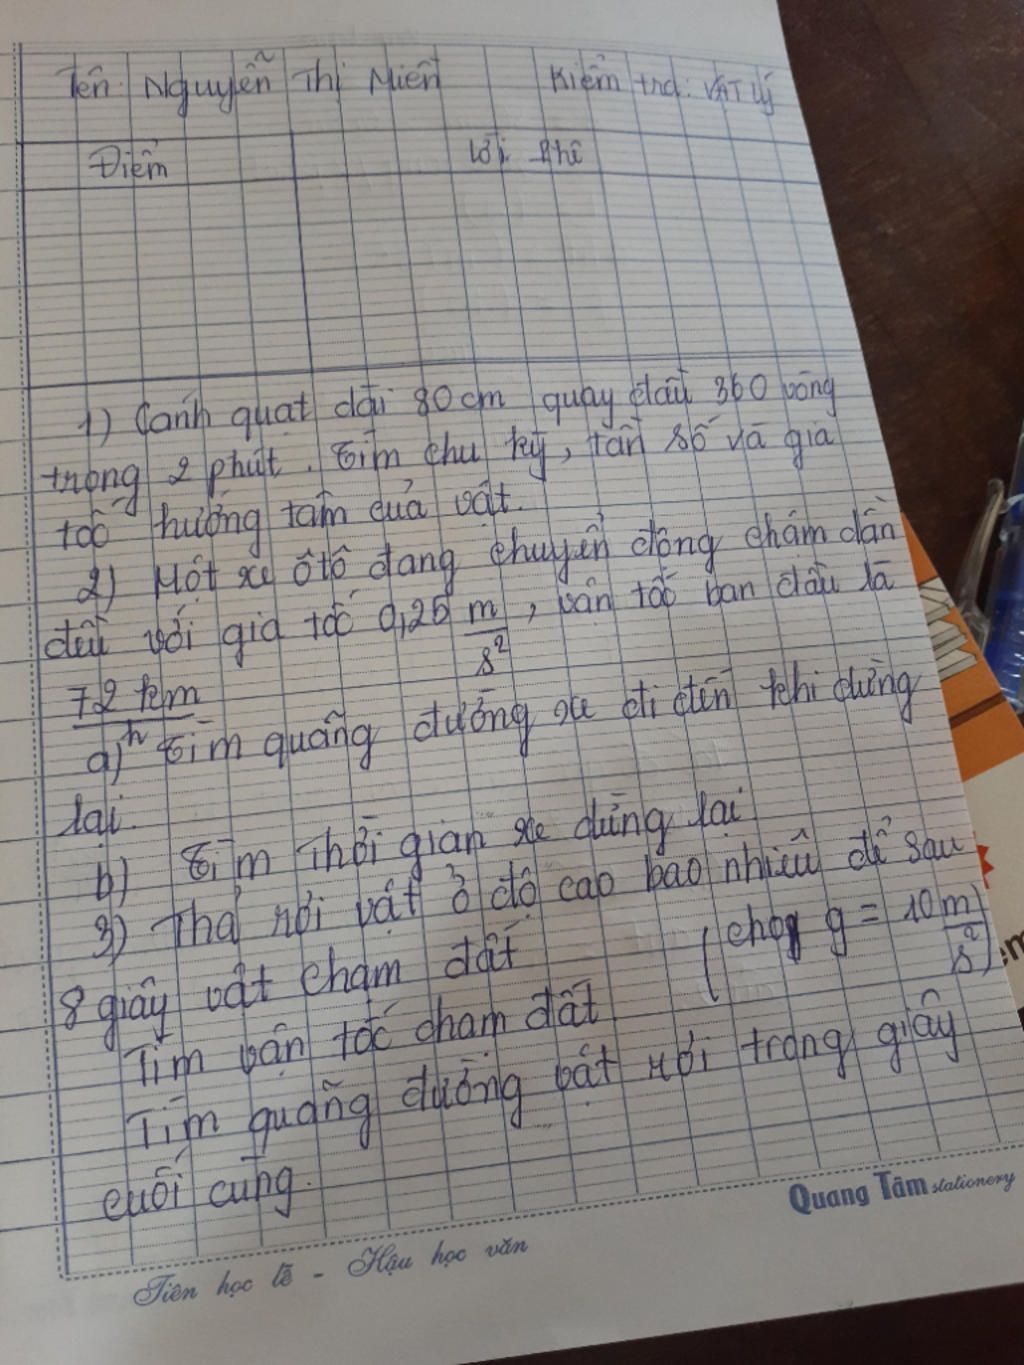 Tên: Nguyễn Thị Miên Kiểm tra: VẬT Lý
Điểm Lời phê
1) Cánh quạt dài 80cm quay đều 360 vòng
trong 2 phút. Tìm chu kỳ, tần số và gia
tốc hướng tâm của vật.
2) Một xe ôtô đang chuyển động chậm dần
đều với gia tốc 0,25 m/s², vận tốc ban đầu là
72 km/h
a) Tìm quãng đường xe đi đến khi dừng
lại.
b) Tìm thời gian xe dừng lại
3) Thả rơi vật ở độ cao bao nhiêu để sau
8 giây vật chạm đất (cho g = 10 m/s²)
Tìm vận tốc chạm đất
Tìm quãng đường vật rơi trong giây
cuối cùng.
Quang Tâm stationery
Tiên học lễ - Hậu học văn